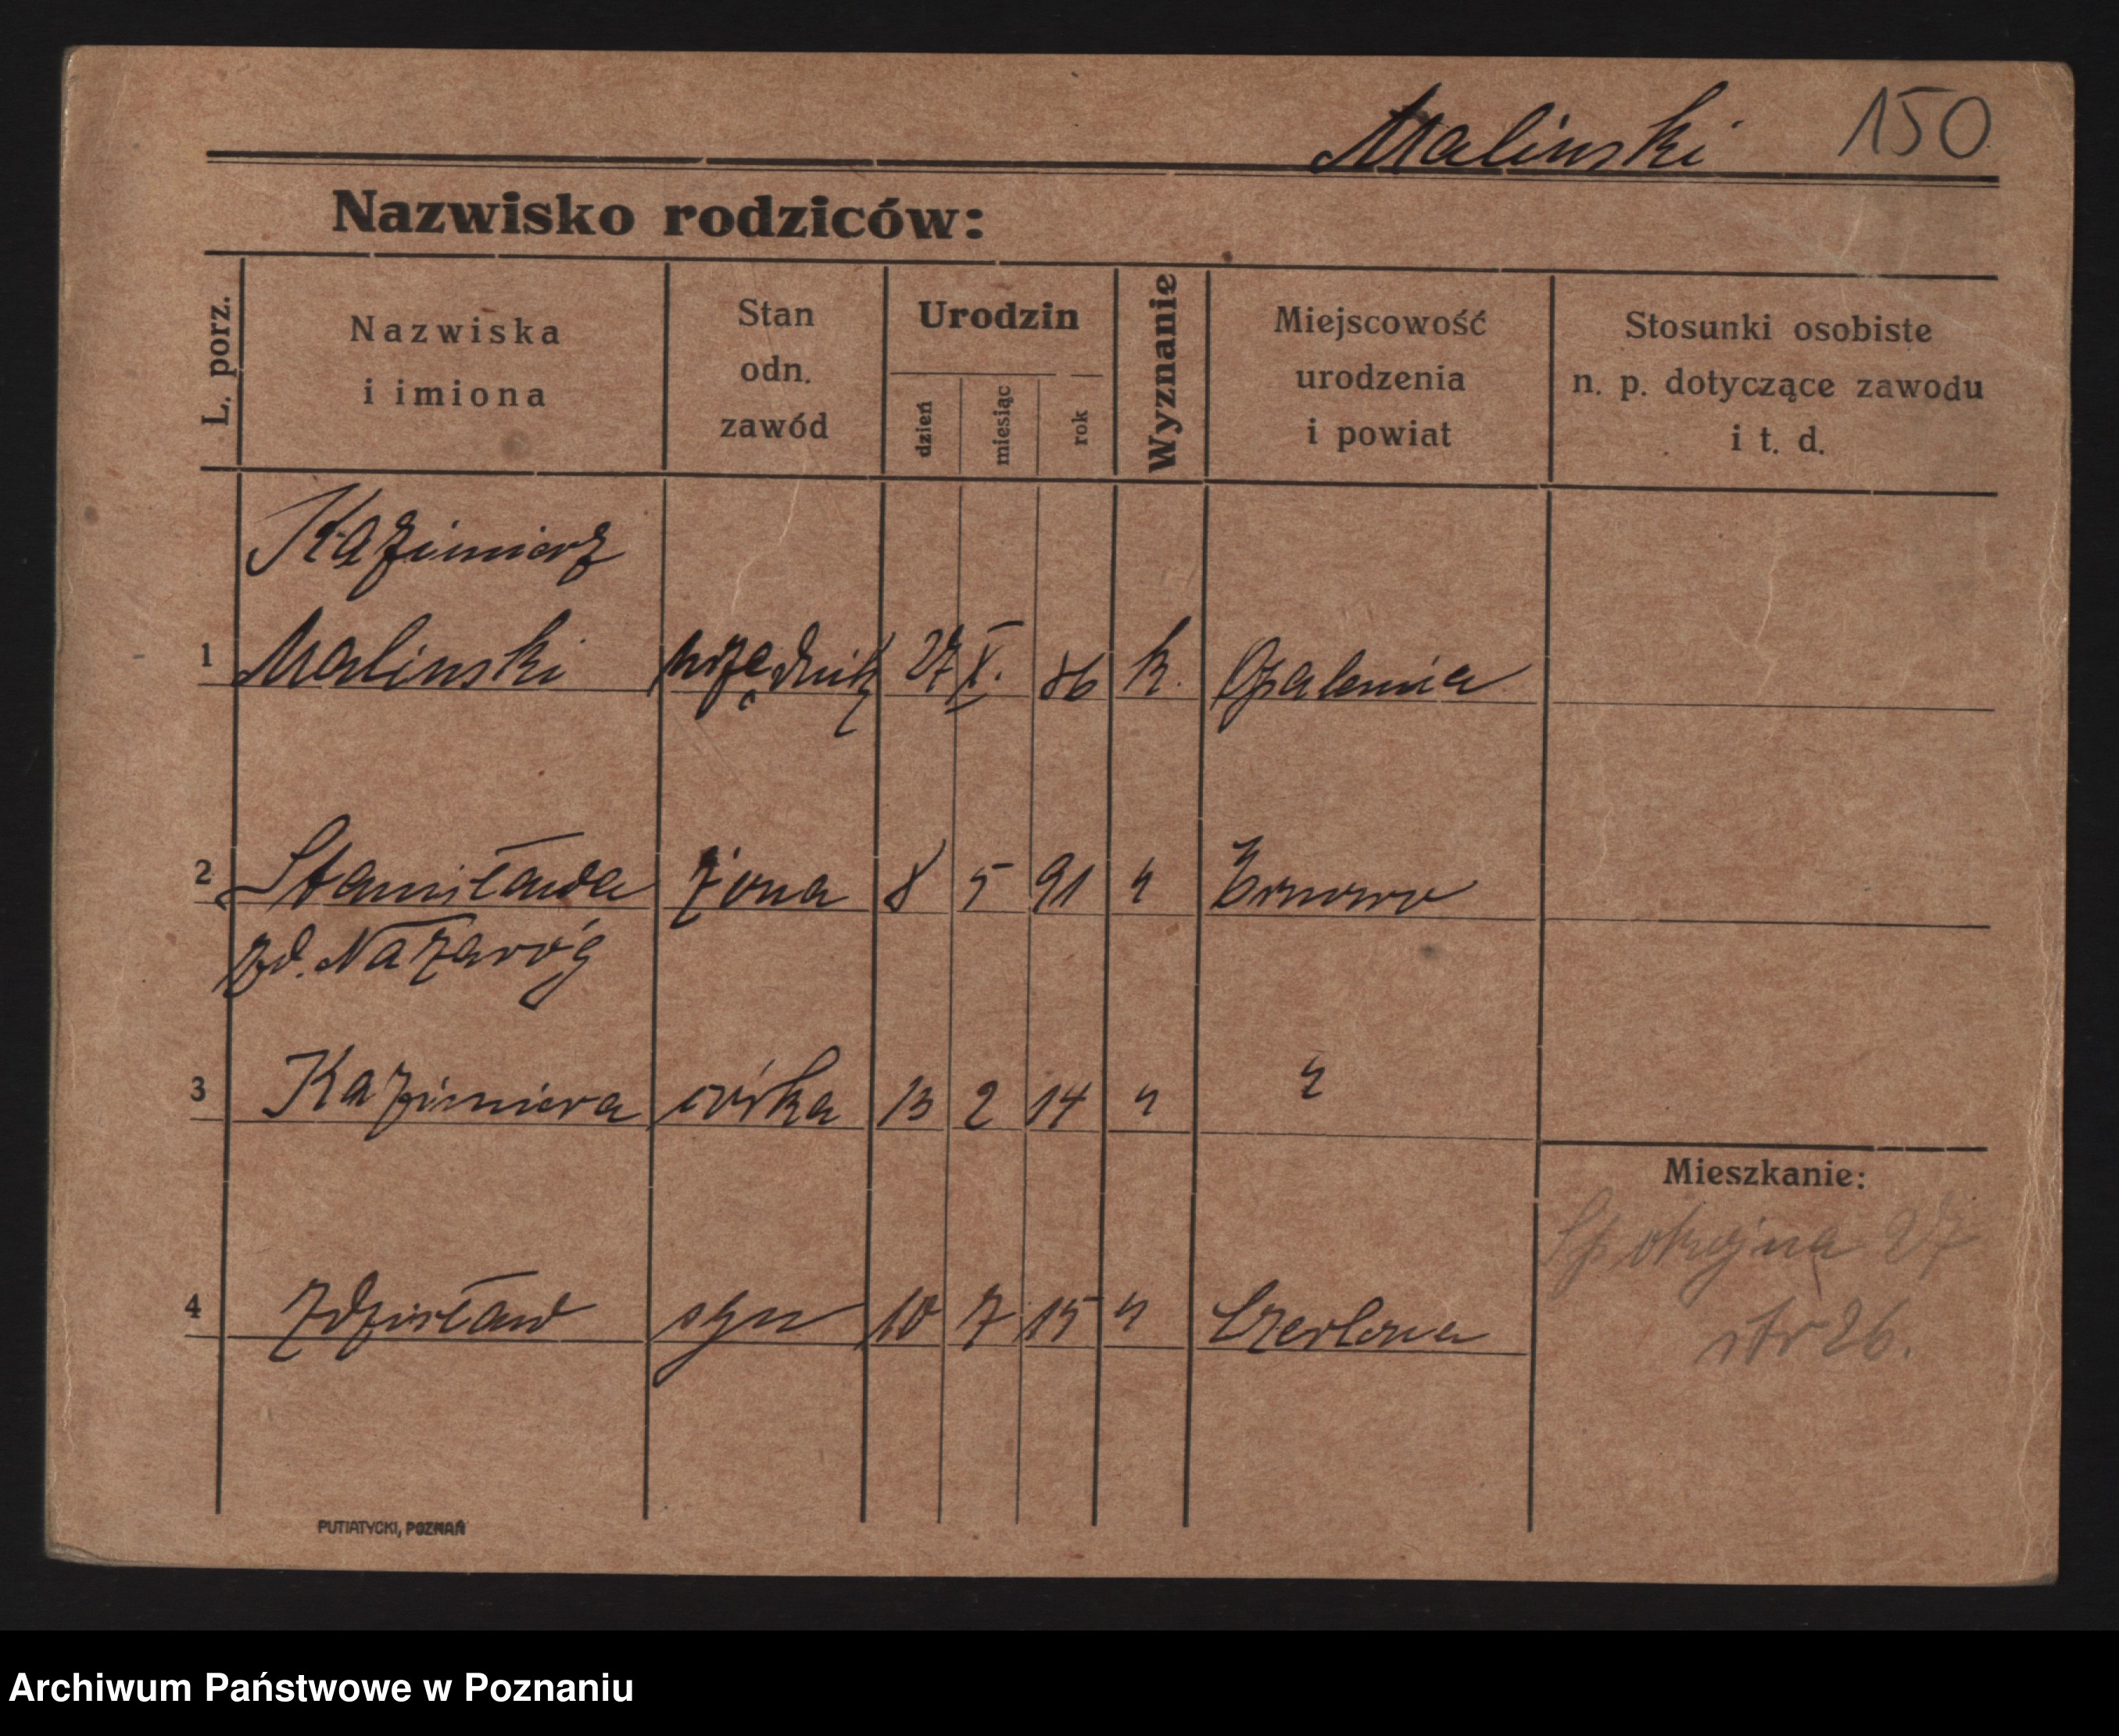 Malinski 150
Nazwisko rodziców:
L. porz.
Nazwiska
i imiona
Stan
odn.
zawód
Urodzin
dzień
miesiąc
rok
Wyznanie
Miejscowość
urodzenia
i powiat
Stosunki osobiste
n. p. dotyczące zawodu
i t. d.
Kazimierz
1 Malinski urzędnik 27 X. 86 k. Opalenica
2 Stanisława żona 8 5 91 "
zd. Nazaróg
3 Kazimiera córka 13 2 14 " "
Mieszkanie:
Spokojna 27
str 26.
4 Zdzisław syn 10 7 15 "
PUTIATYCKI, POZNAŃ
Archiwum Państwowe w Poznaniu